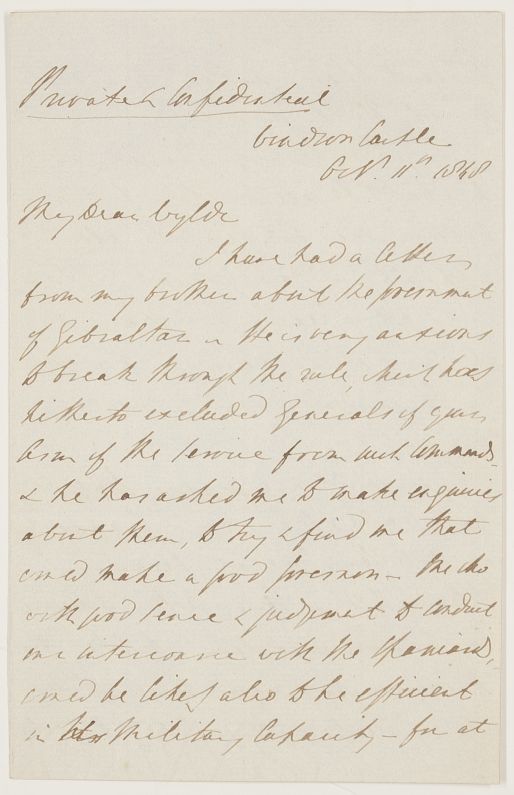 Private & Confidential
Windsor Castle
Octr. 11th 1848
My Dear Wylde
I have had a letter
from my brother about the Government
of Gibraltar – He is very anxious
to break through the rule, which has
hitherto excluded Generals of your
Arm of the Service from such Commands –
& he has asked me to make enquiries
about them, to try & find one that
could make a good Governor – One who
with good sense & judgement to conduct
our intercourse with the Spaniards,
could be likely also to be efficient
in his Military Capacity – for at